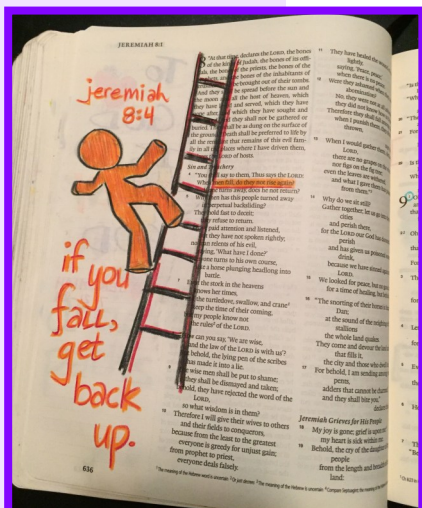 JEREMIAH 8:1
jeremiah
8:4
if you
fall,
get
back
up.
"At that time, declares the LORD, the bones
of the kings of Judah, the bones of its offi-
the bones of the priests, the bones of the
the bones of the inhabitants of
be brought out of their tombs.
be spread before the sun and
the moon and all the host of heaven, which
they have and served, which they have
gone after, which they have sought and
they shall not be gathered or
buried. They shall be as dung on the surface of
the ground. Death shall be preferred to life by
all the remnant that remains of this evil fam-
ily in all the places where I have driven them,
declares the LORD of hosts.
Sin and Treachery
4 "You shall say to them, Thus says the LORD:
When men fall, do they not rise again?
If one turns away, does he not return?
Why then has this people turned away
in perpetual backsliding?
They hold fast to deceit;
they refuse to return.
I have paid attention and listened,
but they have not spoken rightly;
no man relents of his evil,
saying, 'What have I done?'
Everyone turns to his own course,
like a horse plunging headlong into
battle.
Even the stork in the heavens
knows her times,
the turtledove, swallow, and crane
keep the time of their coming,
my people know not
the rules of the LORD.
"How can you say, 'We are wise,
and the law of the LORD is with us'?
But behold, the lying pen of the scribes
has made it into a lie.
The wise men shall be put to shame;
they shall be dismayed and taken;
behold, they have rejected the word of the
LORD,
so what wisdom is in them?
10 Therefore I will give their wives to others
and their fields to conquerors,
because from the least to the greatest
everyone is greedy for unjust gain;
from prophet to priest,
everyone deals falsely.
11 They have healed the wound
lightly,
saying, 'Peace, peace,'
when there is no
12 Were they ashamed when
No, they were not at all
they did not know how
Therefore they shall fall
when I punish them, they
thrown,
13 When I would gather them,
LORD,
there are no grapes on the
nor figs on the fig tree;
even the leaves are withered,
and what I gave them has
from them."
14 Why do we sit still?
Gather together; let us go into
cities
and perish there,
for the LORD our God has
perish
and has given us poisoned
drink,
because we have sinned against
LORD.
15 We looked for peace, but no
for a time of healing, but
16 "The snorting of their horses
Dan;
at the sound of the neighing
stallions
the whole land quakes.
They come and devour the land
that fills it,
the city and those who dwell
17 For behold, I am sending among
pents,
adders that cannot be charmed,
and they shall bite you,"
Jeremiah Grieves for His People
18 My joy is gone; grief is upon me;
my heart is sick within me.
19 Behold, the cry of the daughter
people
from the length and breadth of
land:
636